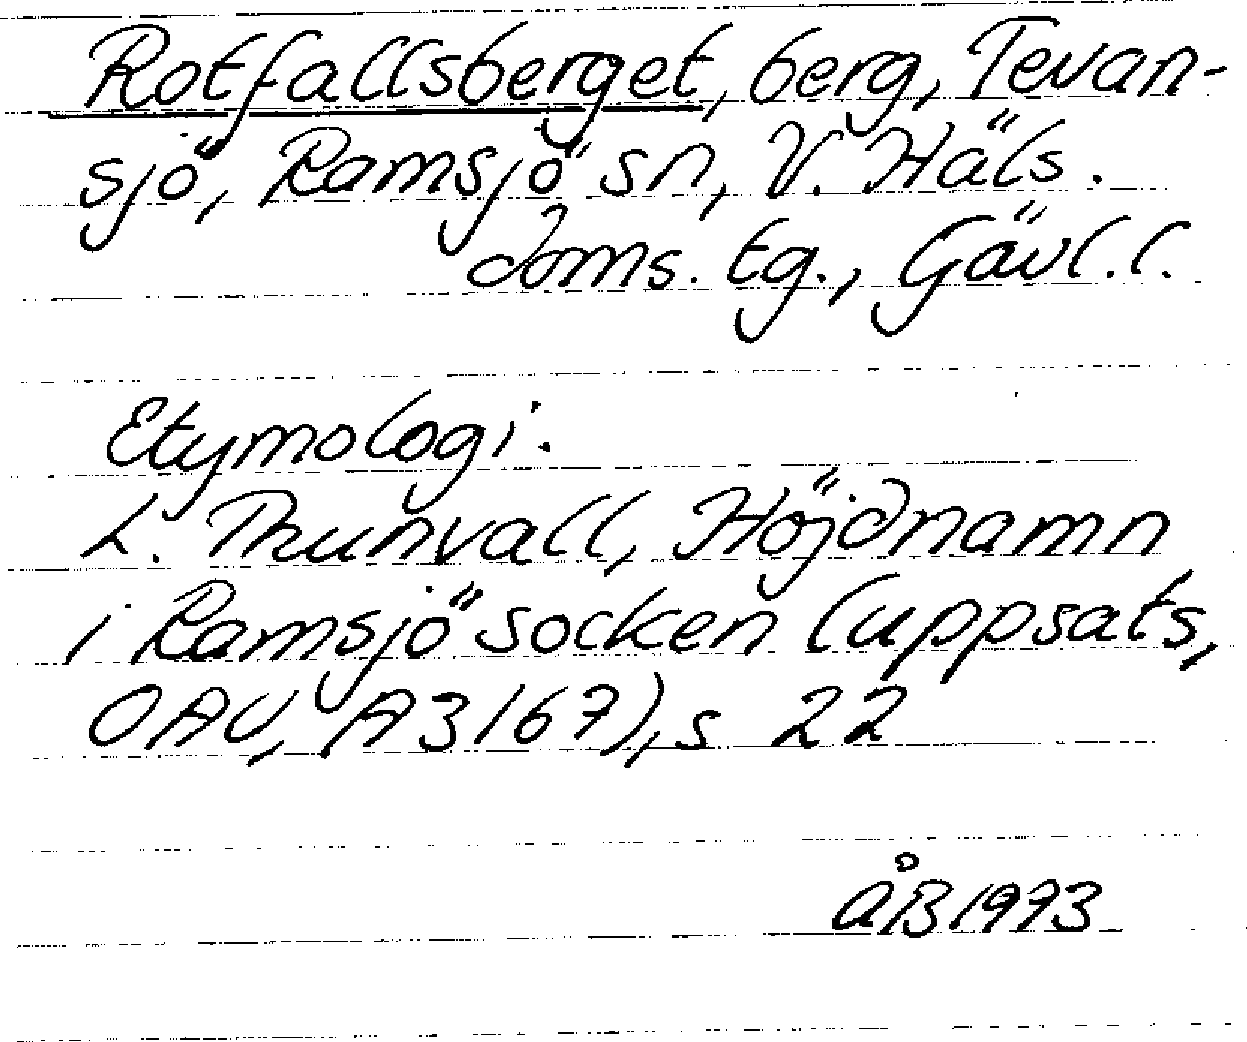 Rotfallsberget, berg, Tevan-
sjö, Ramsjö sn, V. Häls.
doms. tg., Gävl. l.
Etymologi.
L. Thunvall, Höjdnamn
i Ramsjö socken (uppsats,
OAU, A3167), s 22
ÅB 1973